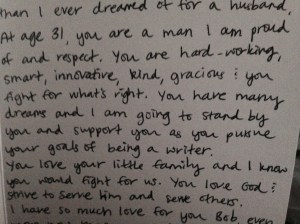 than I ever dreamed of for a husband.
At age 31, you are a man I am proud
of and respect. You are hard-working,
smart, innovative, kind, gracious & you
fight for what's right. You have many
dreams and I am going to stand by
you and support you as you pursue
your goals of being a writer.
You love your little family and I know
you would fight for us. You love God &
strive to serve him and serve others.
I have so much love for you Bob, even